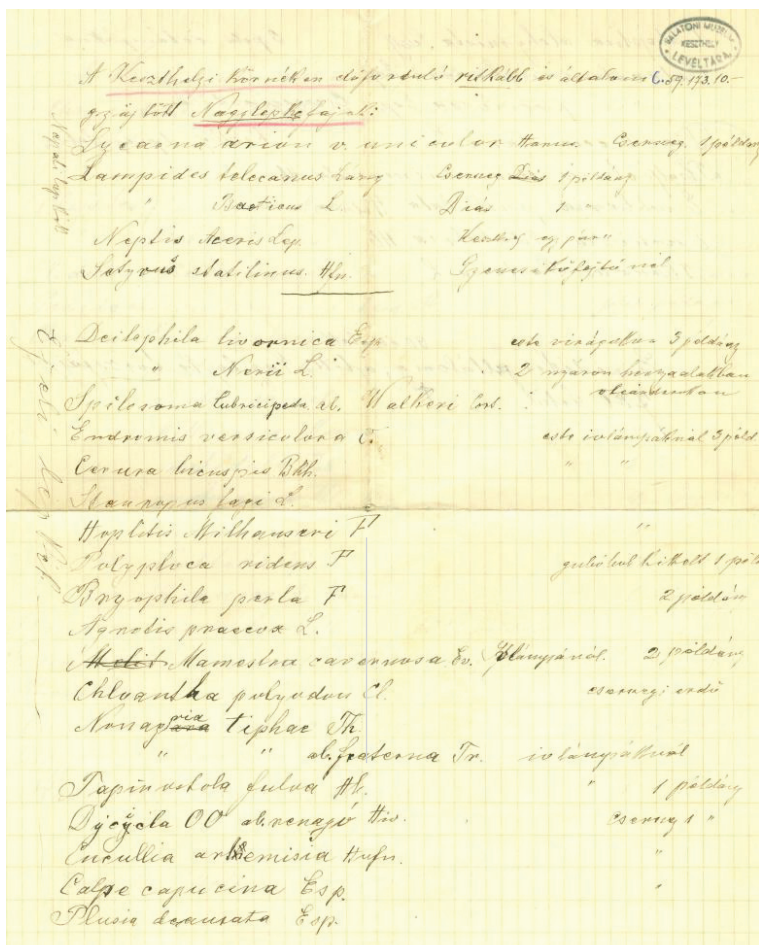 BALATONI MUZEUM
KESZTHELY
LEVÉLTÁRA.
A Keszthelyi környéken előforduló ritkább és általam C.59.173.10.-
gyűjtött Nagylepkefajok:
Lycaena arion v. unicolor Hormuz. Cserszeg. 1 példány
Lampides telecanus Lang Cserszeg Diás 1 példány
" Baeticus L. Diás 1 "
Neptis Aceris Lep. Keszthely egy
Satyrus statilinus. Hfn. kőfejtőnél
Nappali lepkék
Deilephila livornica Esp. este virágokon 3 példány
" Nerii L. 2 nyáron hernyóalakban
oleanderokon
Spilosoma lubricipeda ab. Walkeri Curt.
Endromis versicolora L. este ívlámpáknál 3 péld.
Cerura bicuspis Bkh. " "
Stauropus fagi L.
Éjjeli lepkék
Hoplitis Milhauseri F "
Polyploca ridens F gubóból kikelt 1 péld
Bryophila perla F 2 példány
Agrotis praecox L.
Melit Mamestra cavernosa Ev. Ívlámpánál. 2 példány
Chloantha polyodon Cl. cserszegi erdő
Nonagria tiphae Th
" " ab. fraterna Tr. ívlámpáknál
Tapinostola fulva Hb. " 1 példány
Dycycla OO ab. renago Hw. Cserszeg 1 "
Cucullia artemisia Hufn. "
Calpe capucina Esp. "
Plusia deaurata Esp.